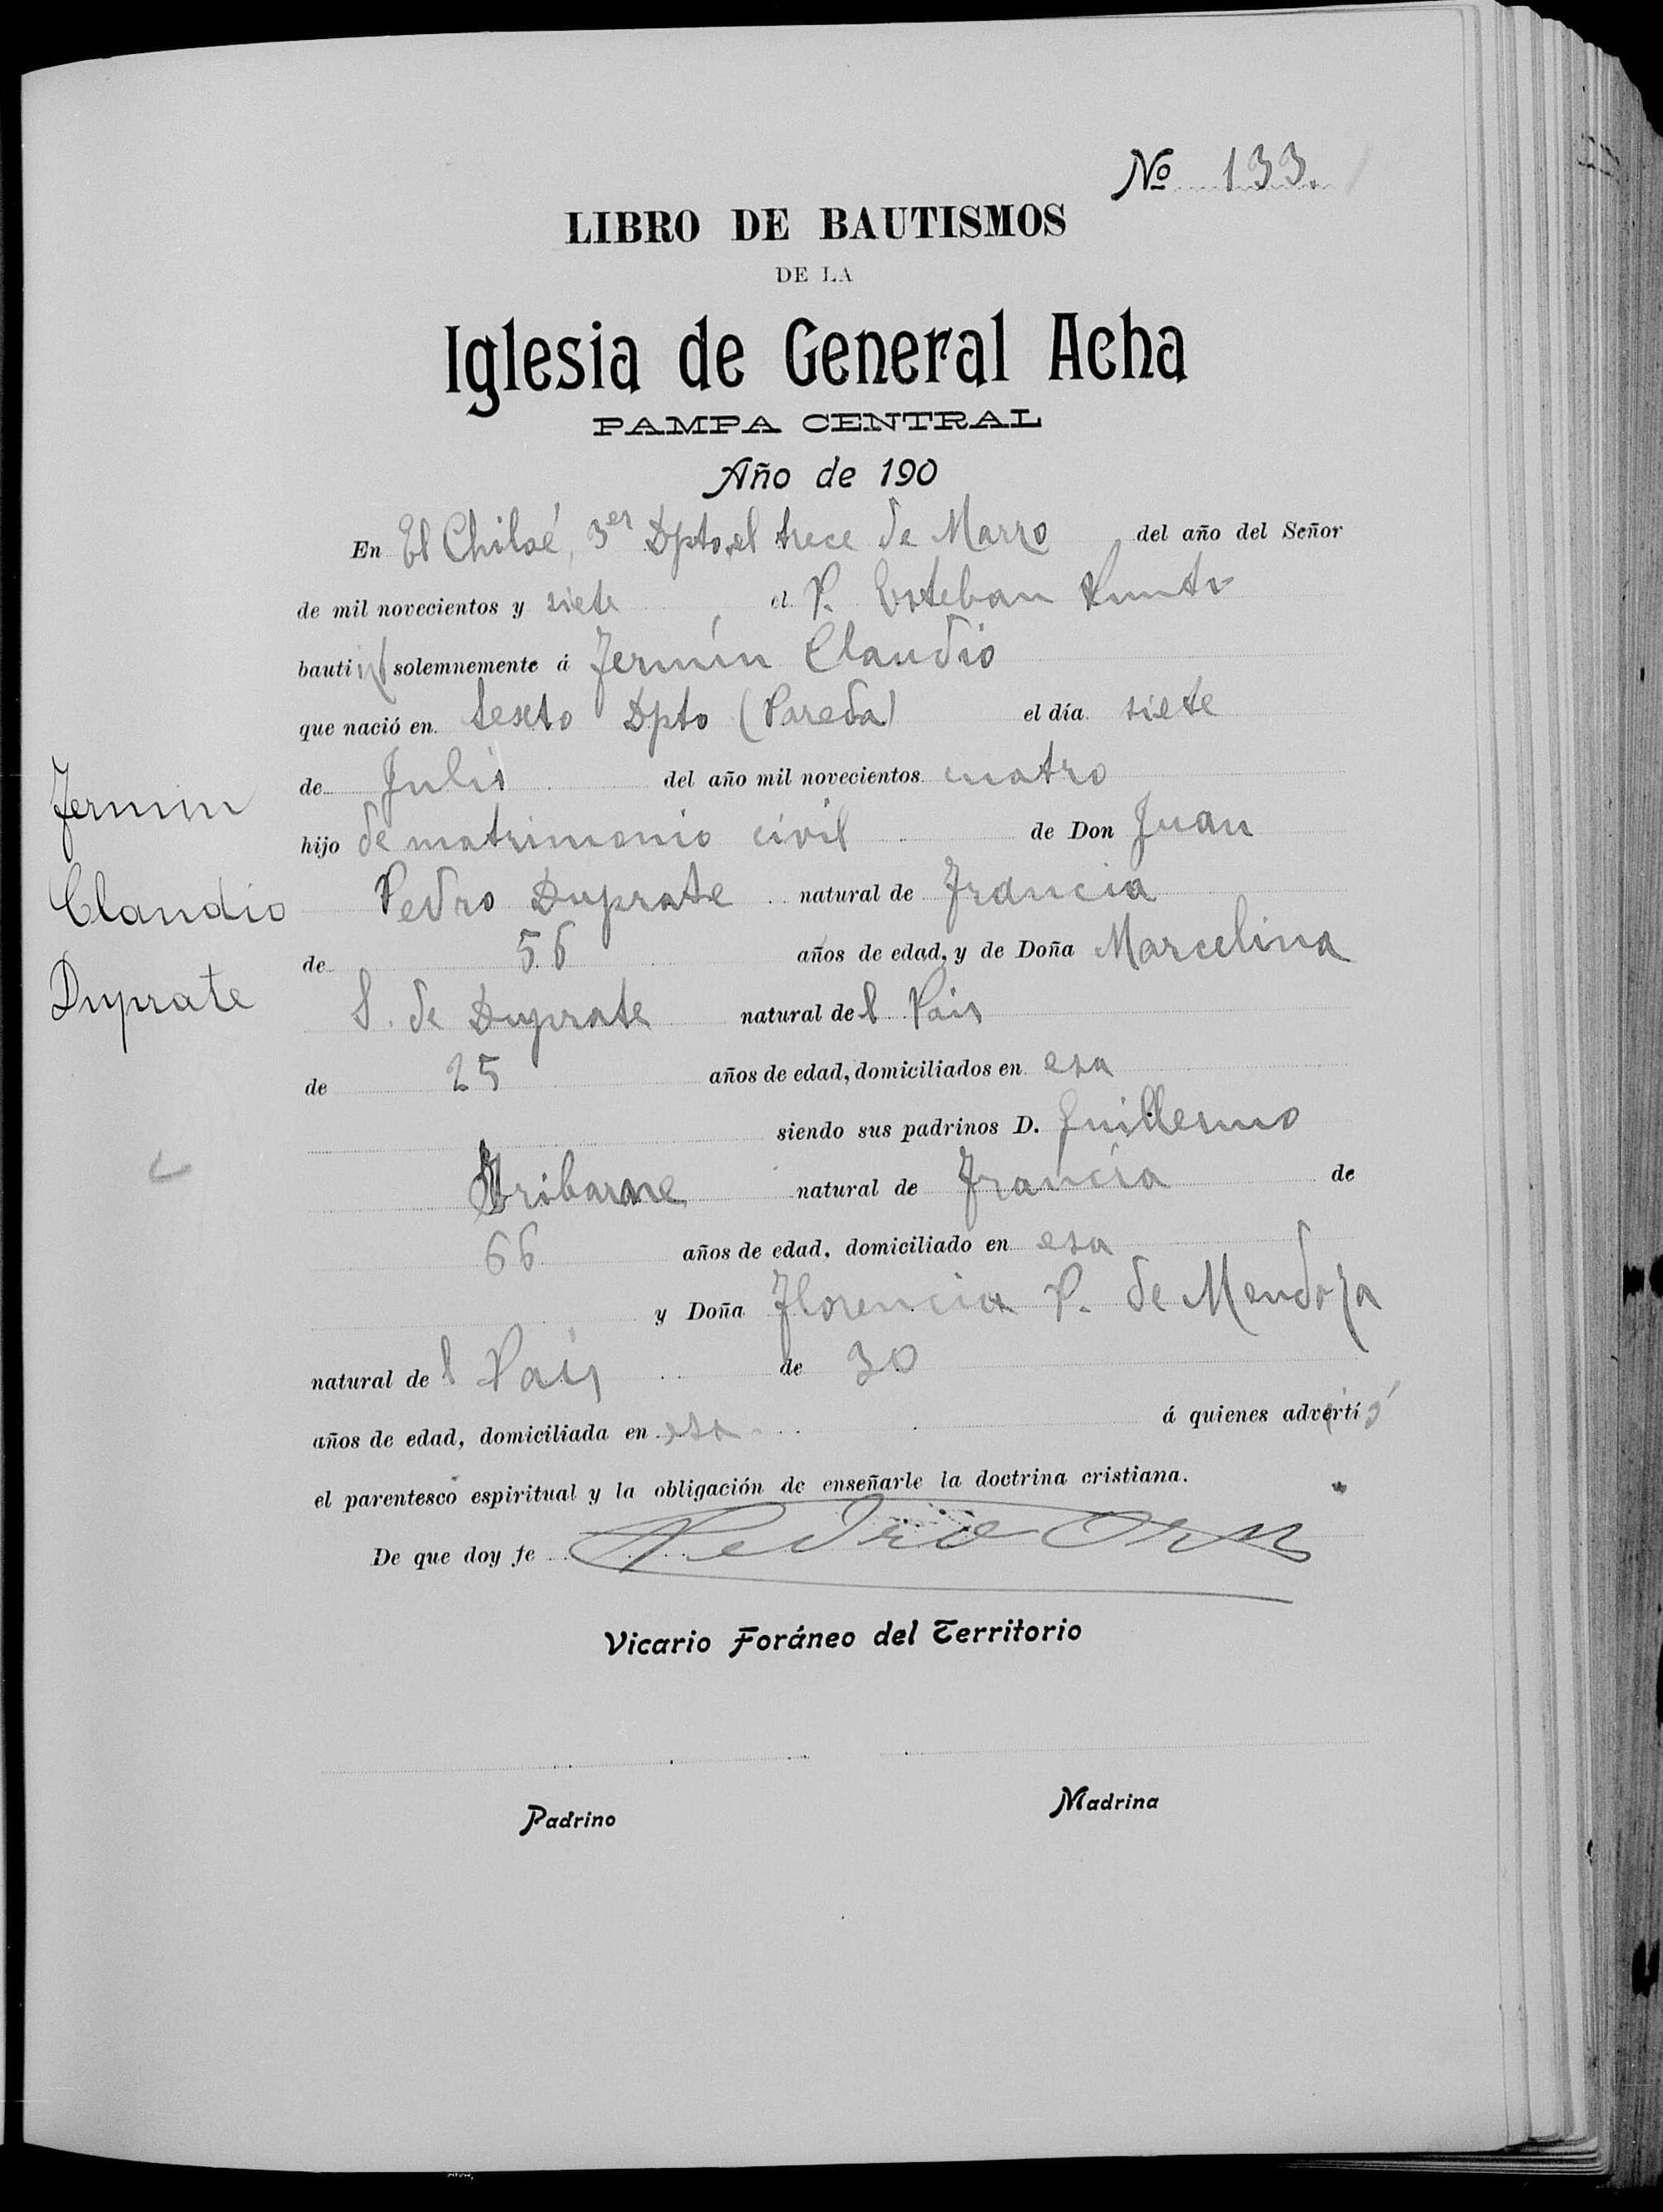 Nº 133.
LIBRO DE BAUTISMOS
DE LA
Iglesia de General Acha
PAMPA CENTRAL
Año de 190
En El Chiloé, 3er Dpto, el trece de Marzo del año del Señor
de mil novecientos y siete el P. Esteban
bauti solemnemente á Fermín Claudio
que nació en Sexto Dpto (Pareda) el día siete
de Julio del año mil novecientos cuatro
hijo de matrimonio civil de Don Juan
Pedro Duprate natural de Francia
de 56 años de edad, y de Doña Marcelina
S. de Duprate natural del Pais
de 25 años de edad, domiciliados en esa
siendo sus padrinos D. Guillermo
Iribarne natural de Francia de
66 años de edad, domiciliado en esa
y Doña Florencia P. de Mendoza
natural del Pais de 30
años de edad, domiciliada en esa á quienes advirtió
el parentesco espiritual y la obligación de enseñarle la doctrina cristiana.
De que doy fe Pedro
Vicario Foráneo del Territorio
Padrino Madrina
Fermin
Claudio
Duprate